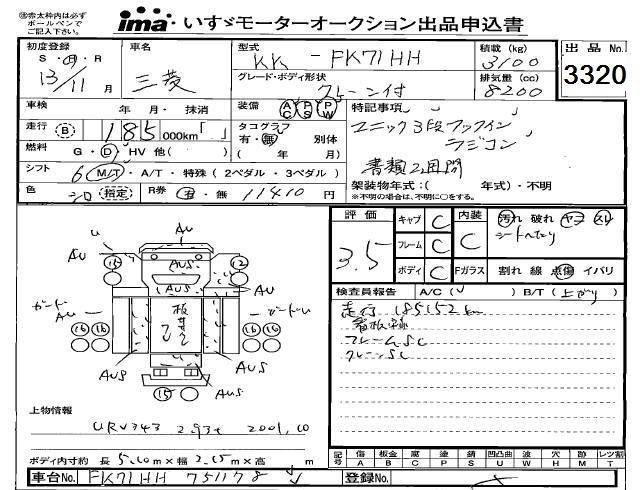 ㊟赤太枠内は必ず
ボールペンで
ご記入下さい。
ima いすゞモーターオークション出品申込書
初度登録 S・H・R 13年 11月
車名 三菱
型式 KK-FK71HH
積載 (kg) 3100
出品 No. 3320
グレード・ボディ形状 クレーン付
排気量 (cc) 8200
車検 年 月・抹消
装備 AC PS PW
特記事項
走行 B 185 000km「 」
タコグラフ 有・無 別体 ( 年 月)
ユニック3段フックイン
ラジコン
燃料 G・D・HV 他( )
シフト 6 M/T・A/T・特殊(2ペダル・3ペダル)
書類2週間
架装物年式:( 年式)・不明
※不明の場合は、不明に○をする。
色 シロ (指定)
R券 有・無 11410 円
評価 3.5
キャブ C
フレーム C
ボディ C
内装 C
Fガラス
汚れ 破れ ヤコ スレ
シートへたり
割れ 線 点傷 イバリ
検査員報告 A/C( ) B/T(上がり)
走行 185152km
フレームSC
クレーンSC
u AU AUS AU
15 12
AU AUS AU
ガード AU 板キズ ガードu AU
16 16 16 16
AUS AUS
15 AUS
上物情報
URV343 2.93t 2001.10
ボディ内寸約 長 5.10m×幅 2.15m×高 m
記号 傷A 板金B 腐C 塗P 錆S 凹凸曲U 波W 穴H 跡M レツ割T
車台No. FK71HH 751178
登録No.